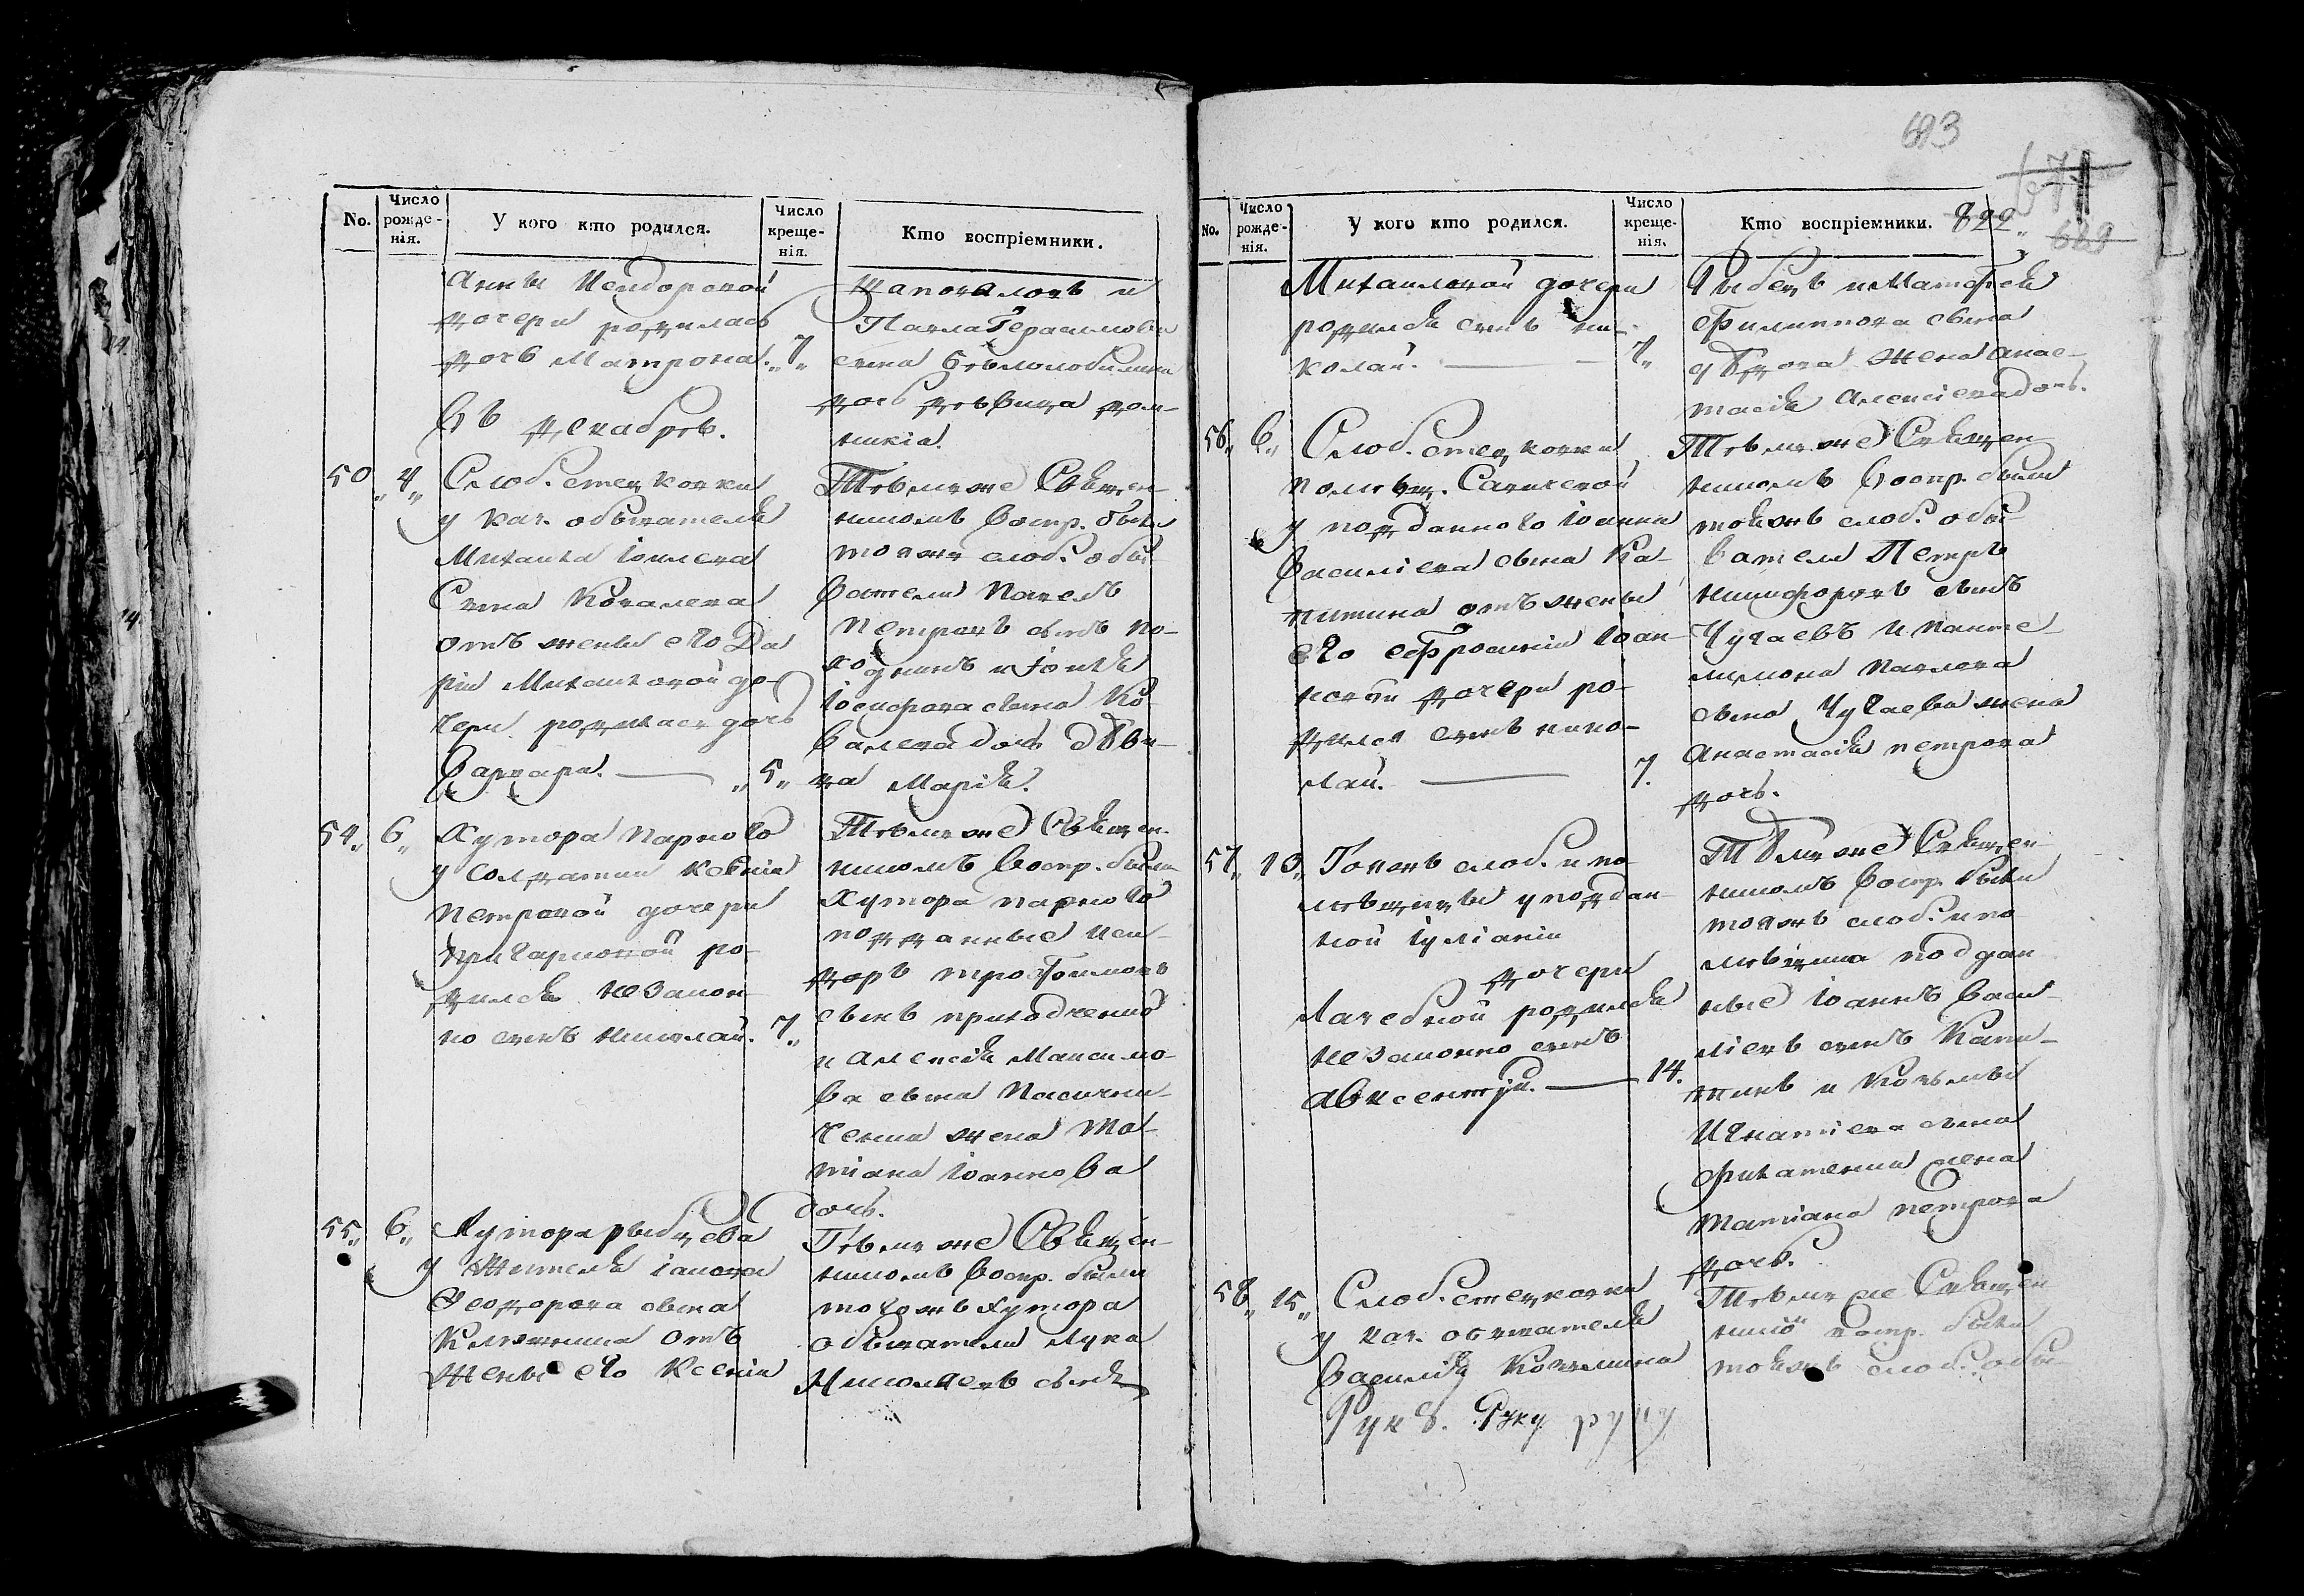 693
671
822
689
No.
Число рожде-нія.
У кого кто родился.
Число креще-нія.
Кто воспріемники.
дочери родилась
дочь Матрона. 7
Въ декабрѣ.
Шаповаловъ и
Павла Герасимова
сына
дочь дѣвица дом-
никіа.
50 4 Слоб. стецковки
у каз. обывателя
Михаила Іовлева
Сына Ковалева
отъ жены его Да
ріи Михаиловой до-
чери родилась дочь
Варвара. 5
Тѣмъ же Священ-
никомъ Воспр. были
тояжъ слоб. обы-
ватели Павелъ
Петровъ сынъ
Іосифова сына Ко
валева дочь дѣви-
ца Марія.
54 6 Хутора Парного
у солдатки Ксеніи
Петровой дочери
ро-
дился незакон
но сынъ Николай. 7
Тѣмъ же Священ-
никомъ Воспр. были
Хутора парного
подданные Иси-
доръ трофимовъ
сынъ приходченко
и Алексія Максимо-
ва сына Пасични-
ченка жена Та-
тіана Іоаннова
дочь.
55 6 Хутора рыбцева
у жителя Іакова
Феодорова сына
отъ
жены его Ксеніи
Тѣмъ же Священ-
никомъ Воспр. были
тогожъ хутора
обыватели Лука
Николаевъ сынъ
No.
Число рожде-нія.
У кого кто родился.
Число креще-нія.
Кто воспріемники.
Михаиловой дочери
родился сынъ ни-
колай. 7
Рыбецъ и Матфея
Филиппова сына
жена Анас-
тасія Алексіева дочь.
56 6 Слоб. стецковки
помѣщ. Савичевой
у подданного Іоанна
Василіева сына Ка-
питина отъ жены
его ефросиніи Іоан-
новой дочери ро-
дился сынъ нико-
лай. 7.
Тѣмъ же Священ
никомъ Воспр. были
тояжъ слоб. обы-
ватели Петръ
никифоровъ сынъ
Чугаевъ и панте-
лимона павлова
сына Чугаева жена
Анастасія петрова
дочь.
57 10 Тоеяжъ слоб. и по
мѣщицы у поддан-
ной Іуліаніи
дочери
родился
незаконно сынъ
Авксентій. 14.
Тѣмъ же Священ
никомъ Воспр. были
тояжъ слоб. и по
мѣщика поддан
ные Іоаннъ Васи-
ліевъ сынъ Капи-
тинъ и Козьмы
Игнатіева сына
жена
Татіана петрова
дочь.
58 15 Слоб. стецковки
у каз. обывателя
Василія
Тѣмъ же Священ
воспр. были
тояжъ слоб. обы
Рукъ. Руку руку